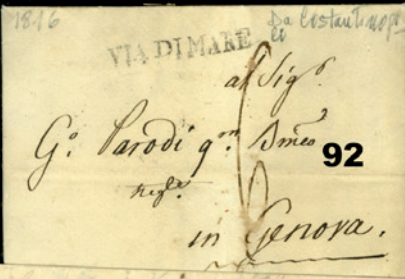 1816
Da Costantinopoli
VIA DI MARE
al Sigr.
Go. Parodi qm. Bmeo
92
negte.
in Genova.